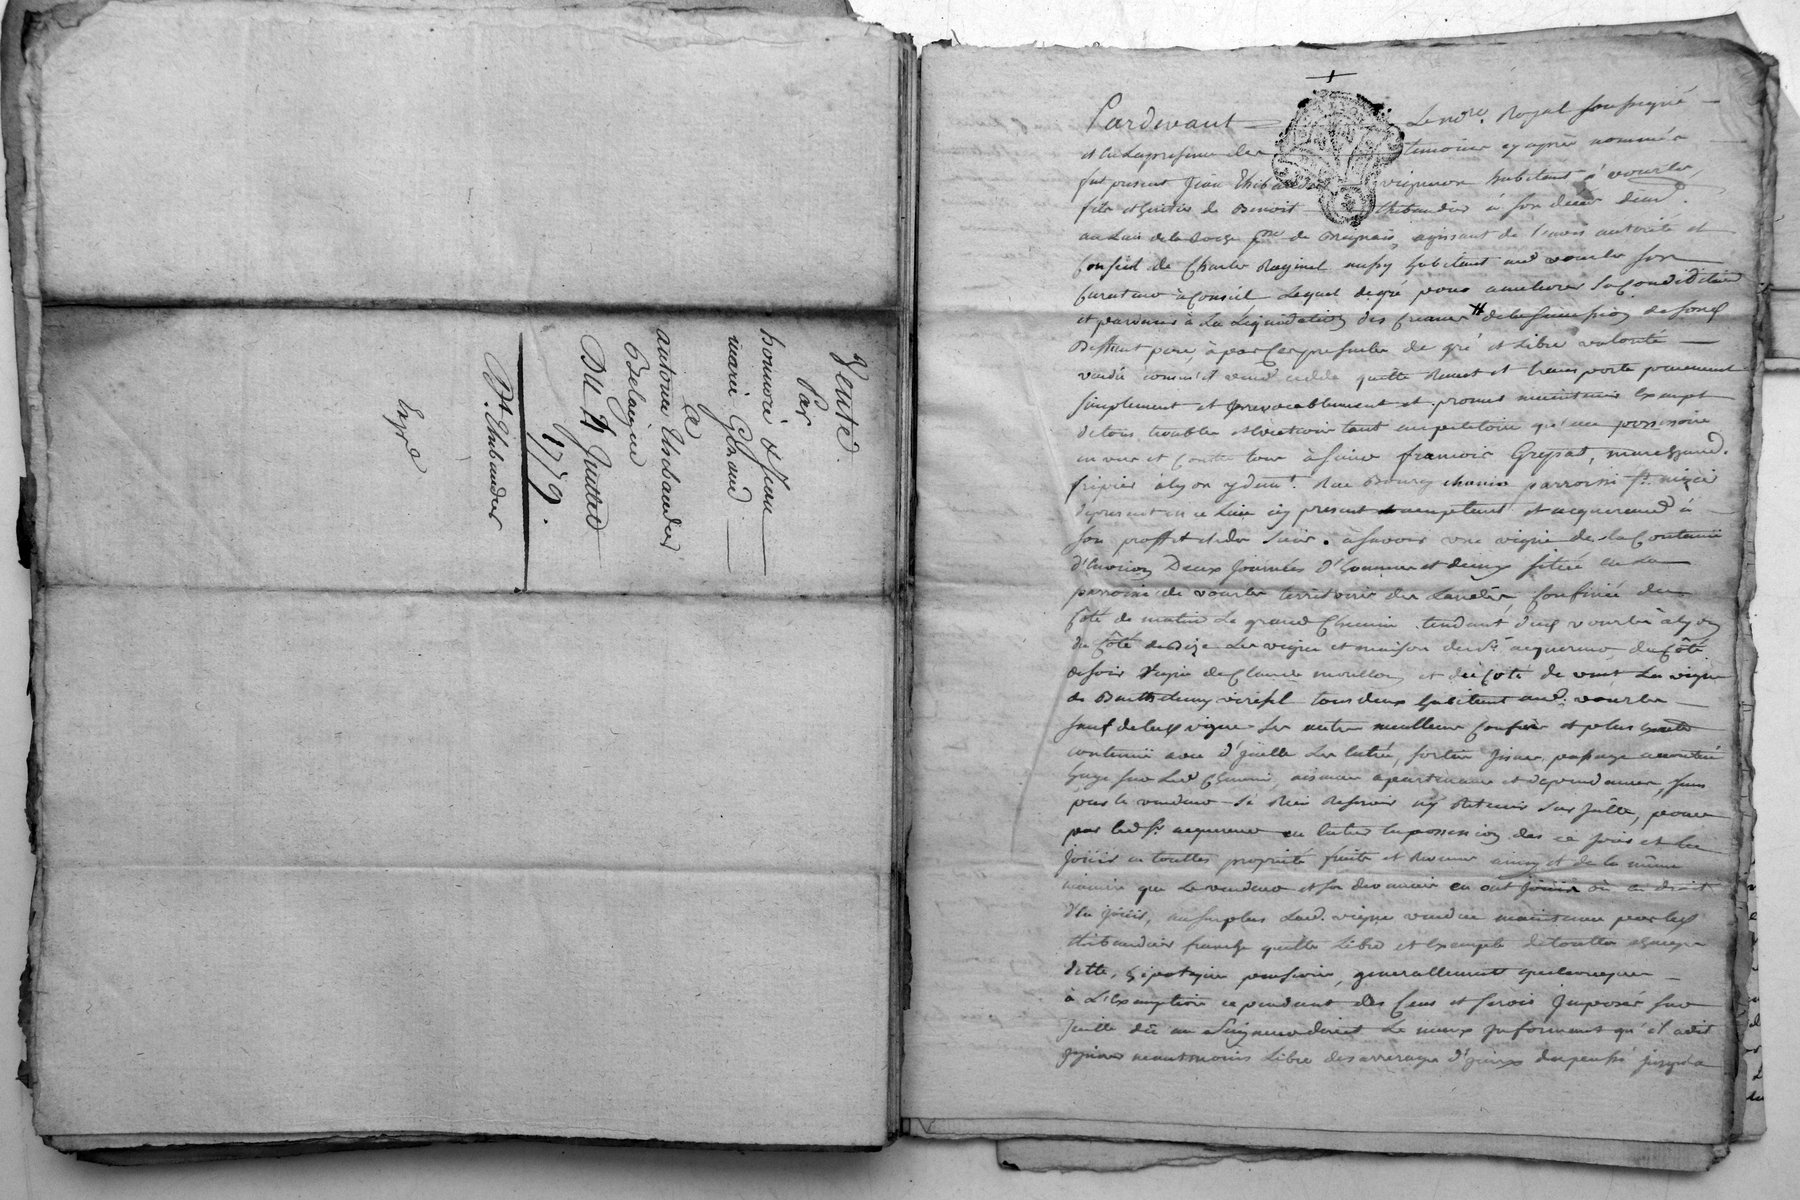 Vente
Par
honnoré & Jean
marie
a
antoine thibaudier
Du 4 Juillet
1779.
Bt. thibaudier
Expé
Pardevant Le nore. Royal soussigné
et en La presence des temoins cy après nommés
fut present Jean thibaudier vigneron habitant à vourles,
fils et heritier de Benoit thibaudier à son deces
au Lieu de la agissant de l'avis autorité et
Conseil de Charles Raginel aussy habitant aud vourles son
Curateur à Conseil Lequel de gré pour ameliorer sa Condidition
et parvenir à La Liquidation des Creances de la succession de son
Deffunt pere, a par Ces presentes de gré et Libre volonté
vendu comme il vend cedde quitte Remet et transporte purement
simplement et Irrevocablement et promet maintenir Exempt
de tous troubles et evictions tant au petitoire qu'au possessoire
en vers et Contre tous à sieur francois Greppat, marchand
fripier à lyon y demt. Rue Bourg chanin parroisse St. nizier
de present en ce Lieu icy present acceptant et acquereur à
son proffit et des siens. à savoir une vigne de la Contenue
d'Environ Deux Journées d'hommes et demy située en La
parroisse de vourles territoire des Confinée du
Coté de matin Le grand Chemin tendant dud vourles à lyon
du Côté de Bize Les vigne et maison dud Sr. acquereur, du Côté
de soir vigne de Claude et du Coté de vent La vigne
de Barthelemy tous deux habitant aud. vourles
sauf de lad vigne Les autres meilleurs Confins et plus
contenue avec d'Icelle Les entrées, sorties Issues, passage accoutumé
sur Led Chemin, aisances apartenances et dependances, sans
par le vendeur se Rien Reserver ny Retenir sur Icelle, pour
par led Sr acquereur en entrer en possession des ce jour et en
Joüir en touttes proprieté fruits et Revenus ainsy et de la même
maniere que Le vendeur et ses devanciers en ont Joüir ou eu droit
d'en Joüir, au surplus Lad. vigne vendue maintenue par led
thibaudier franche quitte Libre et Exempte de touttes charges
dette, hipoteques pensions, generallement quelconques
à L'Exemption cependant des Cens et servis Imposés sur
Icelle dû au Seigneur direct Le mieux Informant qu'il a dit
Ignorer neantmoins Libre des arrerages d'Iceux du passé jusqu'a